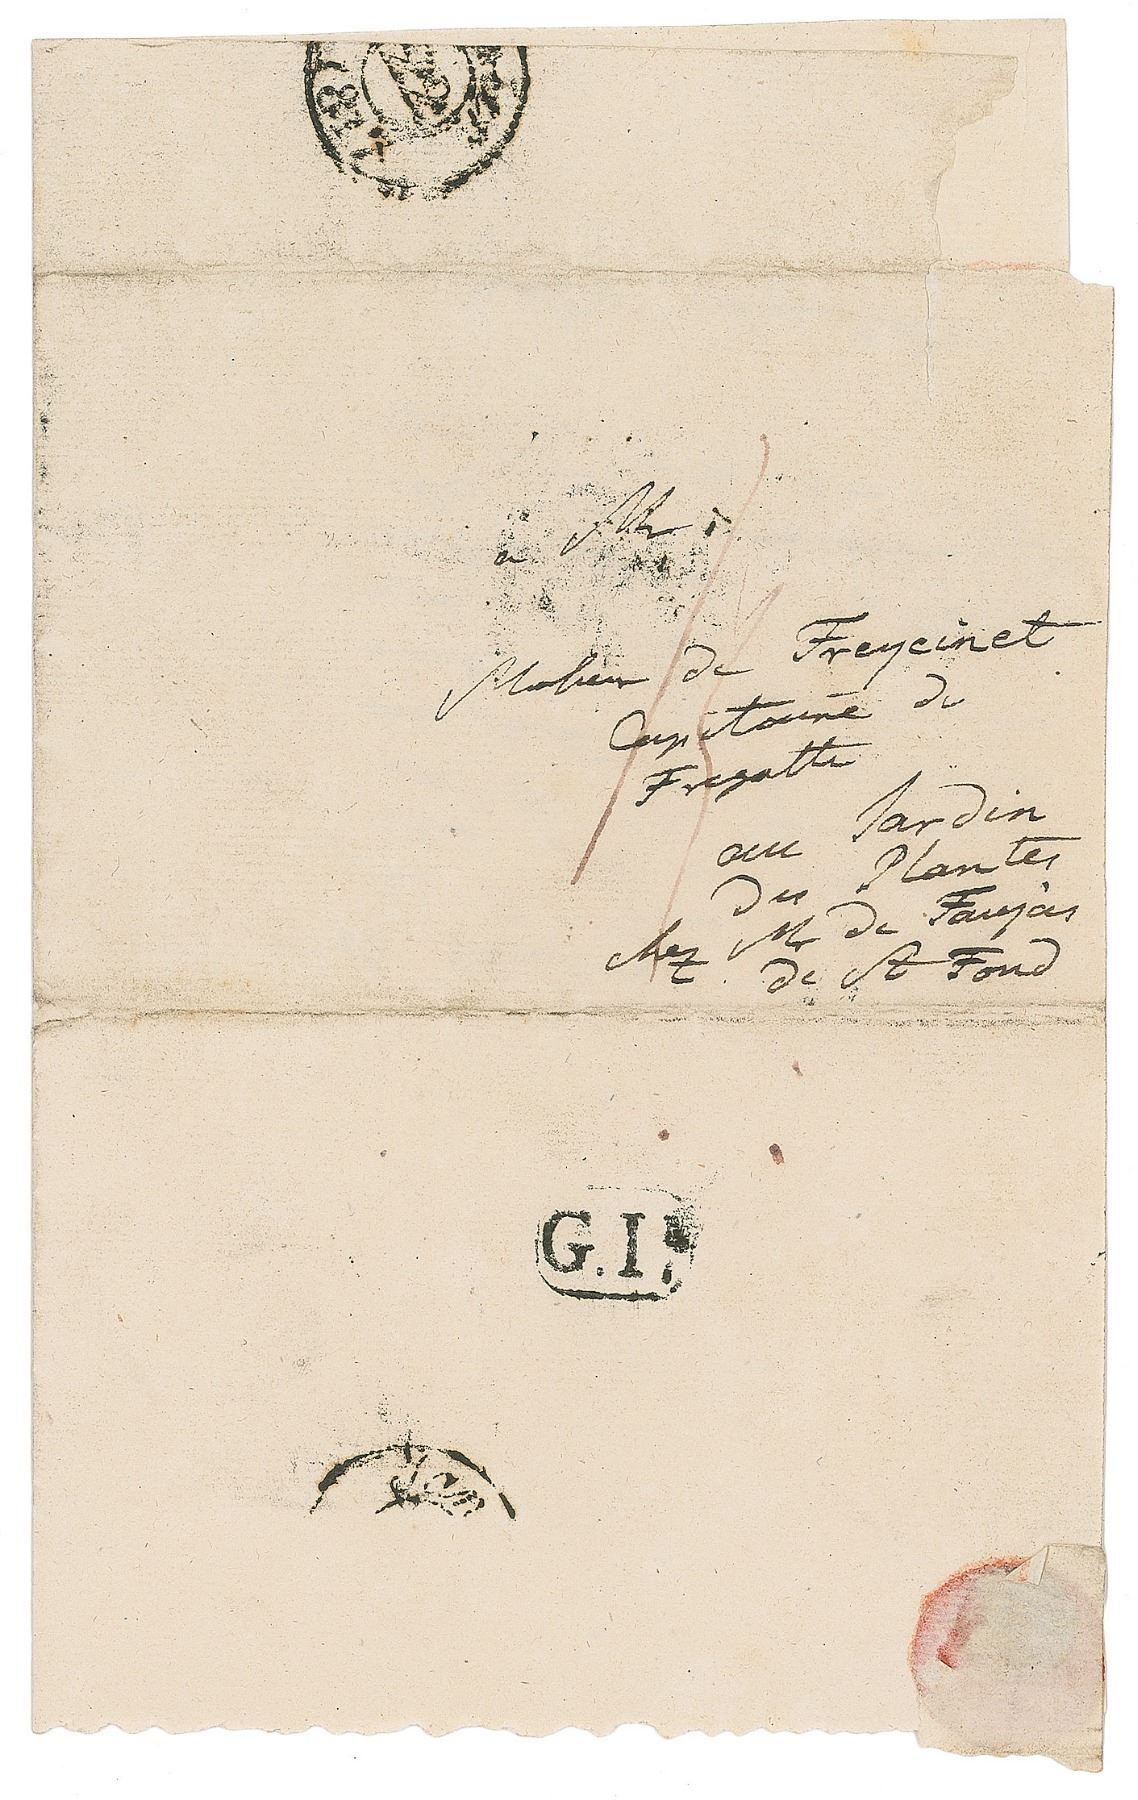 181
a Mr
Monsieur de Freycinet
Capitaine de
Fregatte
au Jardin
des Plantes
chez Mr de Faujas
de St Fond
G.I.